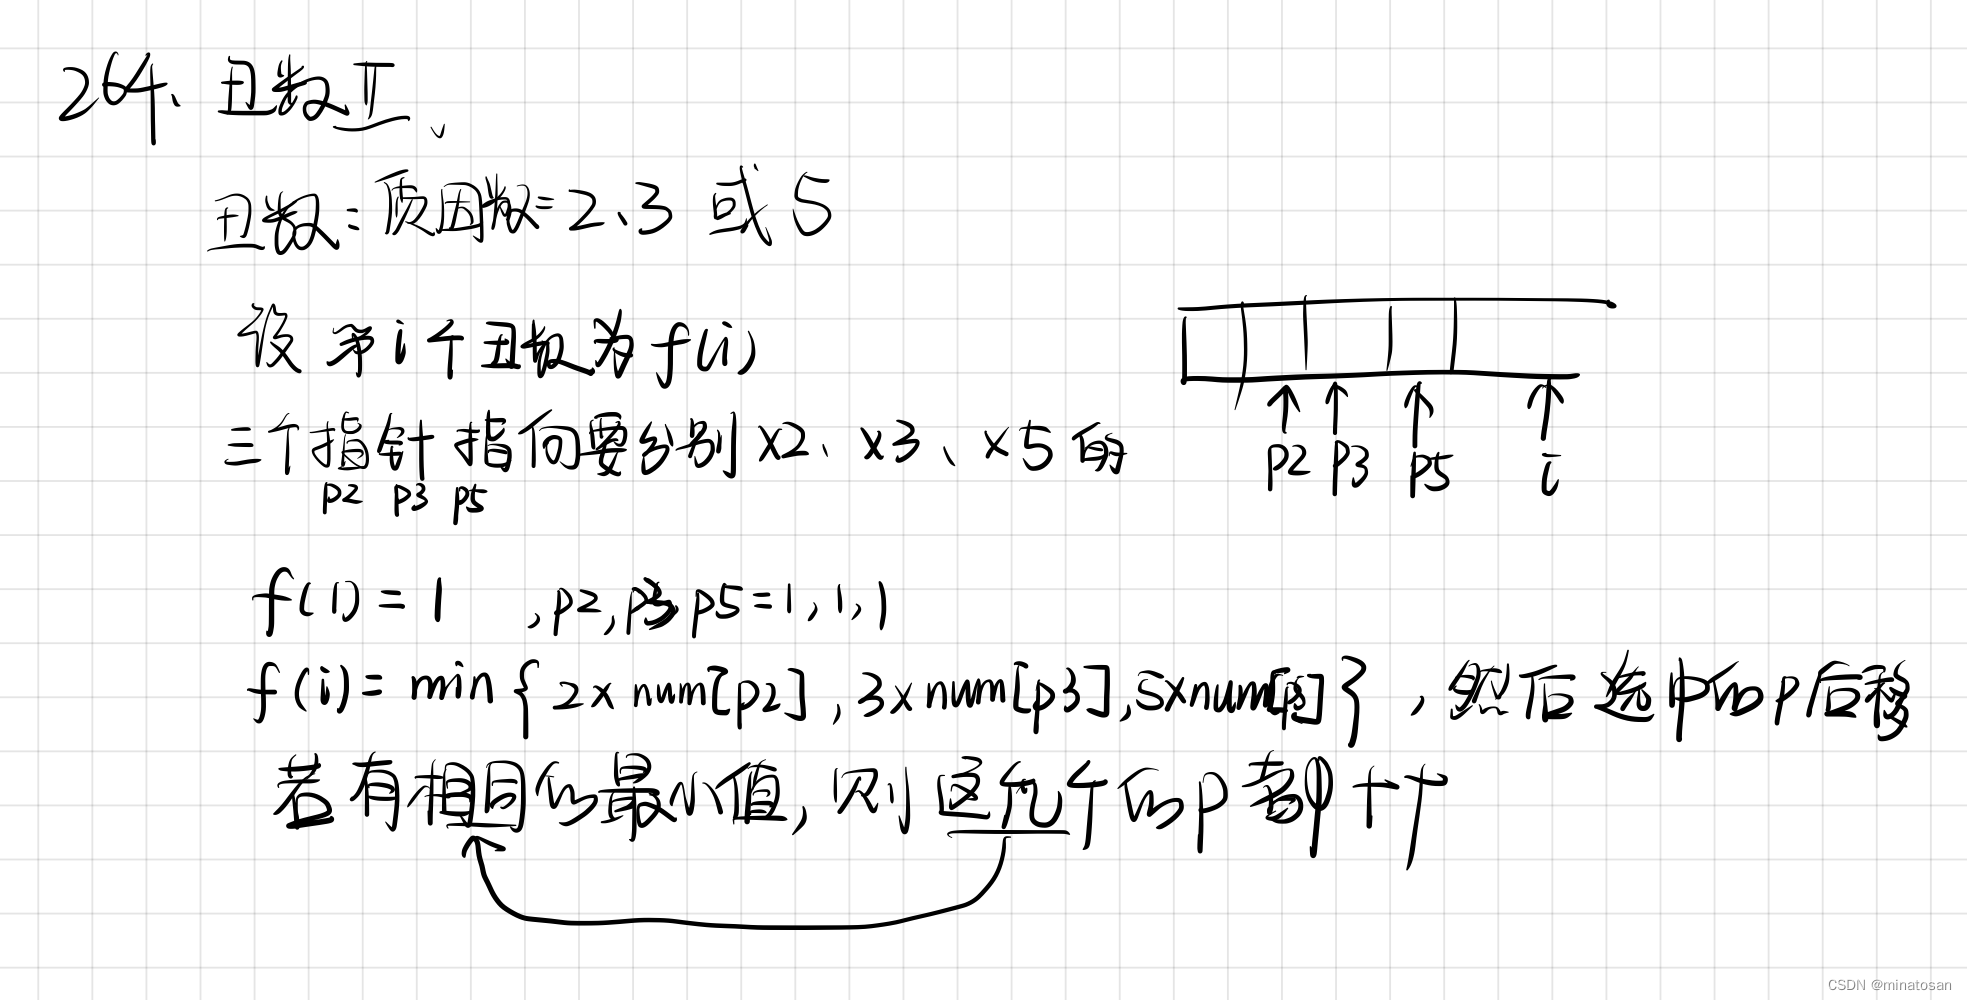 264、丑数Ⅱ、
丑数：质因数=2、3 或 5
设 第 i 个丑数为 f(i)
三个指针 指向要分别 ×2、×3、×5 的
p2 p3 p5
p2 p3 p5 i
f(1) = 1 , p2, p3, p5=1, 1, 1
f(i) = min { 2× num[p2] , 3×num[p3], 5×num[p5] } , 然后 选中的p后移
若有相同的最小值, 则 这几个的p都p++
CSDN @minatosan